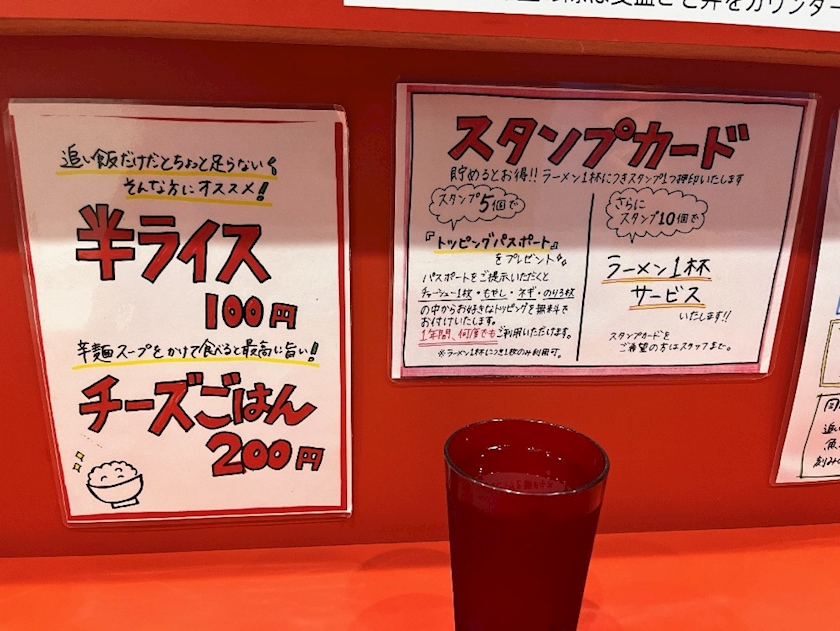 追い飯だけだとちょっと足らない
そんな方にオススメ!
半ライス
100円
辛麺スープをかけて食べると最高に旨い!
チーズごはん
200円
スタンプカード
貯めるとお得!! ラーメン1杯につきスタンプ1つ押印いたします
スタンプ5個で
『トッピングパスポート』
をプレゼント
パスポートをご提示いただくと
チャーシュー1枚・もやし・ネギ・のり3枚
の中からお好きなトッピングを無料で
お付けいたします。
1年間、何度でもご利用いただけます。
※ラーメン1杯につき1枚のみ利用可。
さらに
スタンプ10個で
ラーメン1杯
サービス
いたします!!
スタンプカードを
ご希望の方はスタッフまで。